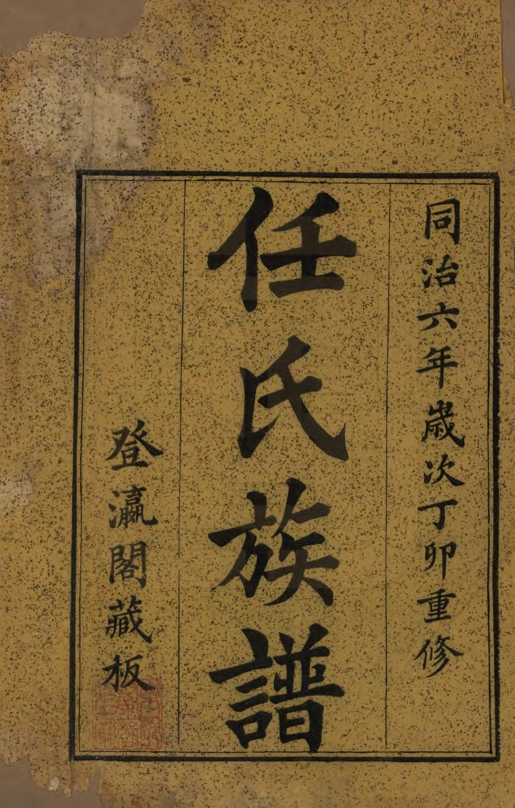 同治六年歲次丁卯重修
任氏族譜
登瀛閣藏板